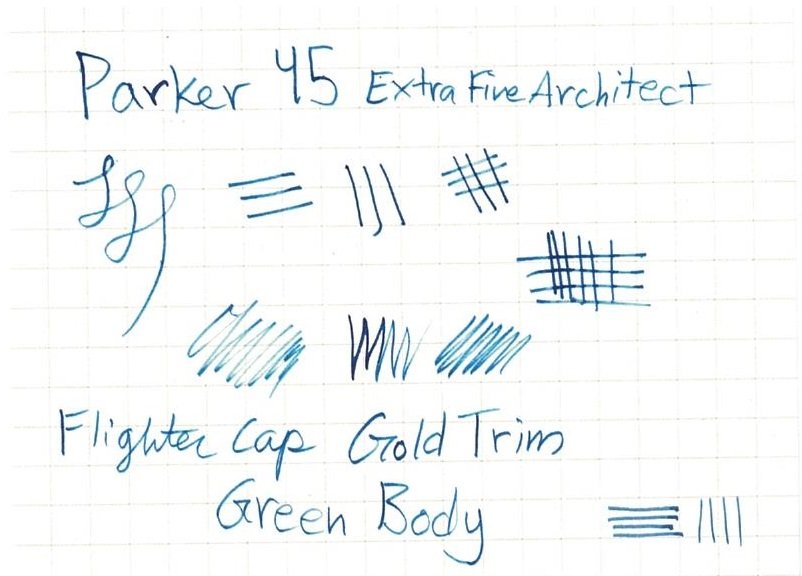 Parker 45 Extra Fine Architect
Flighter Cap Gold Trim
Green Body